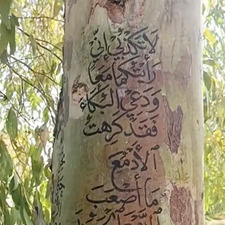 لا تكذبي إني
رأيتكما معا
ودعي البكاء
فقد كرهت
الأدمع
ما أصعب